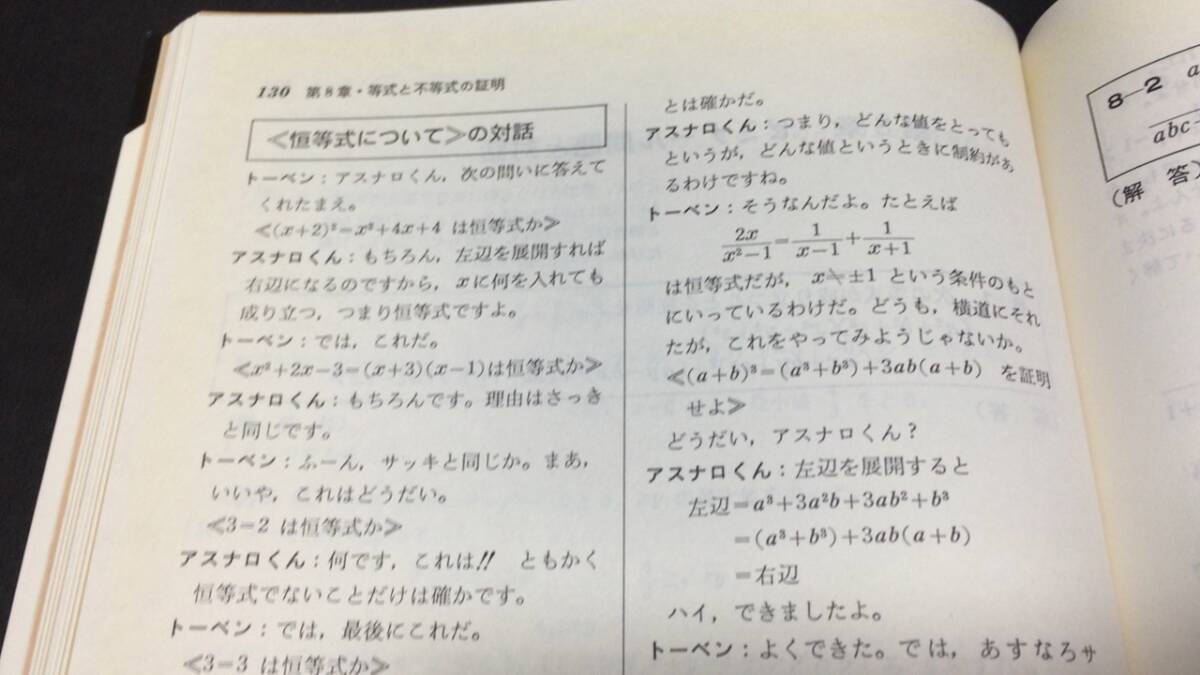 130 第8章・等式と不等式の証明
≪恒等式について≫の対話
トーベン：アスナロくん，次の問いに答えて
くれたまえ。
≪(x+2)²=x²+4x+4 は恒等式か≫
アスナロくん：もちろん，左辺を展開すれば
右辺になるのですから，xに何を入れても
成り立つ，つまり恒等式ですよ。
トーベン：では，これだ。
≪x²+2x−3=(x+3)(x−1)は恒等式か≫
アスナロくん：もちろんです。理由はさっき
と同じです。
トーベン：ふーん，サッキと同じか。まあ，
いいや，これはどうだい。
≪3=2 は恒等式か≫
アスナロくん：何です，これは!! ともかく
恒等式でないことだけは確かです。
トーベン：では，最後にこれだ。
≪3=3 は恒等式か≫
とは確かだ。
アスナロくん：つまり，どんな値をとっても
というが，どんな値というときに制約があ
るわけですね。
トーベン：そうなんだよ。たとえば
2x/(x²−1)=1/(x−1)+1/(x+1)
は恒等式だが，x≠±1 という条件のもと
にいっているわけだ。どうも，横道にそれ
たが，これをやってみようじゃないか。
≪(a+b)³=(a³+b³)+3ab(a+b) を証明
せよ≫
どうだい，アスナロくん？
アスナロくん：左辺を展開すると
左辺=a³+3a²b+3ab²+b³
=(a³+b³)+3ab(a+b)
=右辺
ハイ，できましたよ。
トーベン：よくできた。では，あすなろサ
8—2 a
abc
(解 答